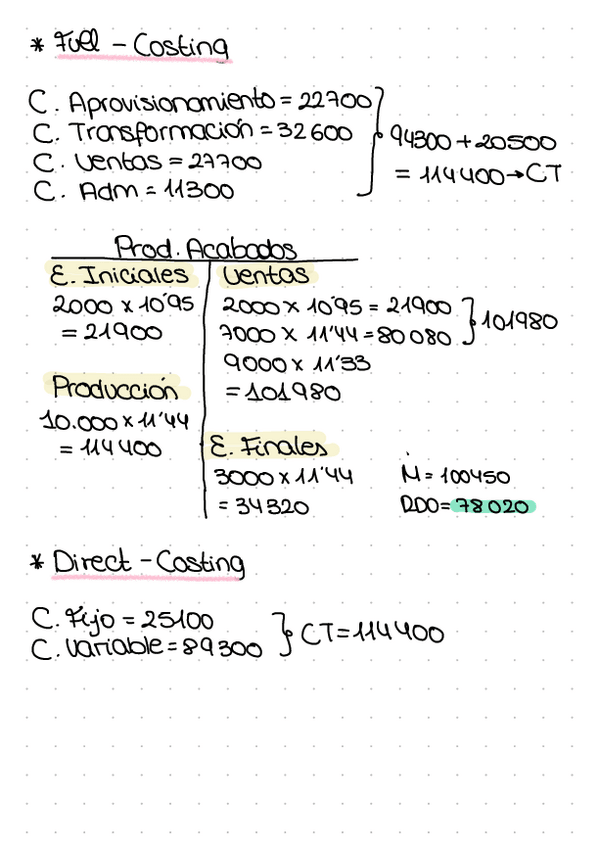 * Fuel - Costing
C. Aprovisionamiento = 22700
C. Transformación = 32600
C. Ventas = 27700
C. Adm = 11300
94300 + 20500
= 114400 → CT
Prod. Acabados
E. Iniciales
2000 x 10'95
= 21900
Producción
10.000 x 11'44
= 114400
Ventas
2000 x 10'95 = 21900
7000 x 11'44 = 80080
101980
9000 x 11'33
= 101980
E. Finales
3000 x 11'44
= 34320
M = 100450
RDO = 78020
* Direct - Costing
C. Fijo = 25100
C. Variable = 89300
CT = 114400